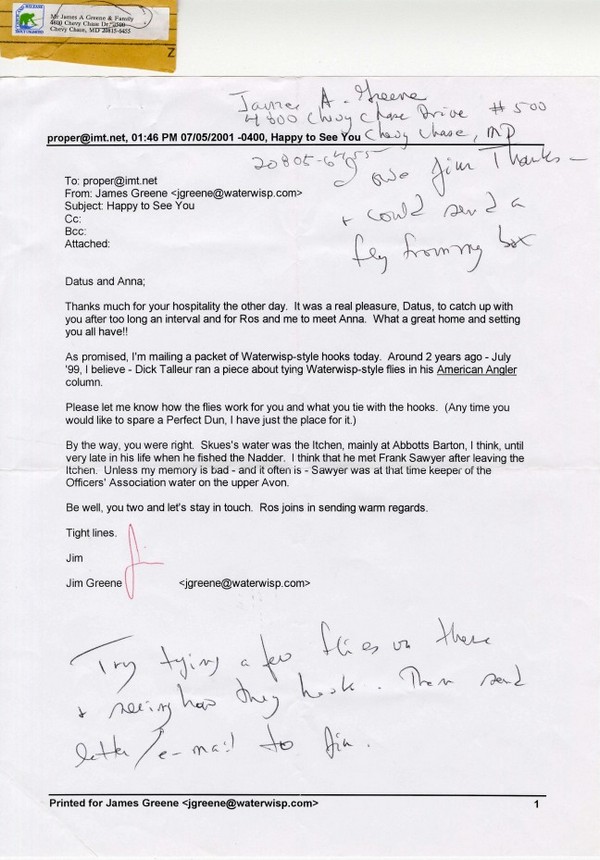 Mr James A Greene & Family
4800 Chevy Chase Dr. #500
Chevy Chase, MD 20815-6455
James A. Greene
4800 Chevy Chase Drive #500
proper@imt.net, 01:46 PM 07/05/2001 -0400, Happy to See You
Chevy Chase, MD
20805-6455
I owe Jim Thanks –
+ could send a
fly from my box
To: proper@imt.net
From: James Greene <jgreene@waterwisp.com>
Subject: Happy to See You
Cc:
Bcc:
Attached:
Datus and Anna;
Thanks much for your hospitality the other day. It was a real pleasure, Datus, to catch up with
you after too long an interval and for Ros and me to meet Anna. What a great home and setting
you all have!!
As promised, I'm mailing a packet of Waterwisp-style hooks today. Around 2 years ago - July
'99, I believe - Dick Talleur ran a piece about tying Waterwisp-style flies in his American Angler
column.
Please let me know how the flies work for you and what you tie with the hooks. (Any time you
would like to spare a Perfect Dun, I have just the place for it.)
By the way, you were right. Skues's water was the Itchen, mainly at Abbotts Barton, I think, until
very late in his life when he fished the Nadder. I think that he met Frank Sawyer after leaving the
Itchen. Unless my memory is bad - and it often is - Sawyer was at that time keeper of the
Officers' Association water on the upper Avon.
Be well, you two and let's stay in touch. Ros joins in sending warm regards.
Tight lines.
Jim
Jim
Jim Greene <jgreene@waterwisp.com>
Try tying a few flies on these
+ seeing how they hook. Then send
letter/e-mail to Jim.
Printed for James Greene <jgreene@waterwisp.com> 1